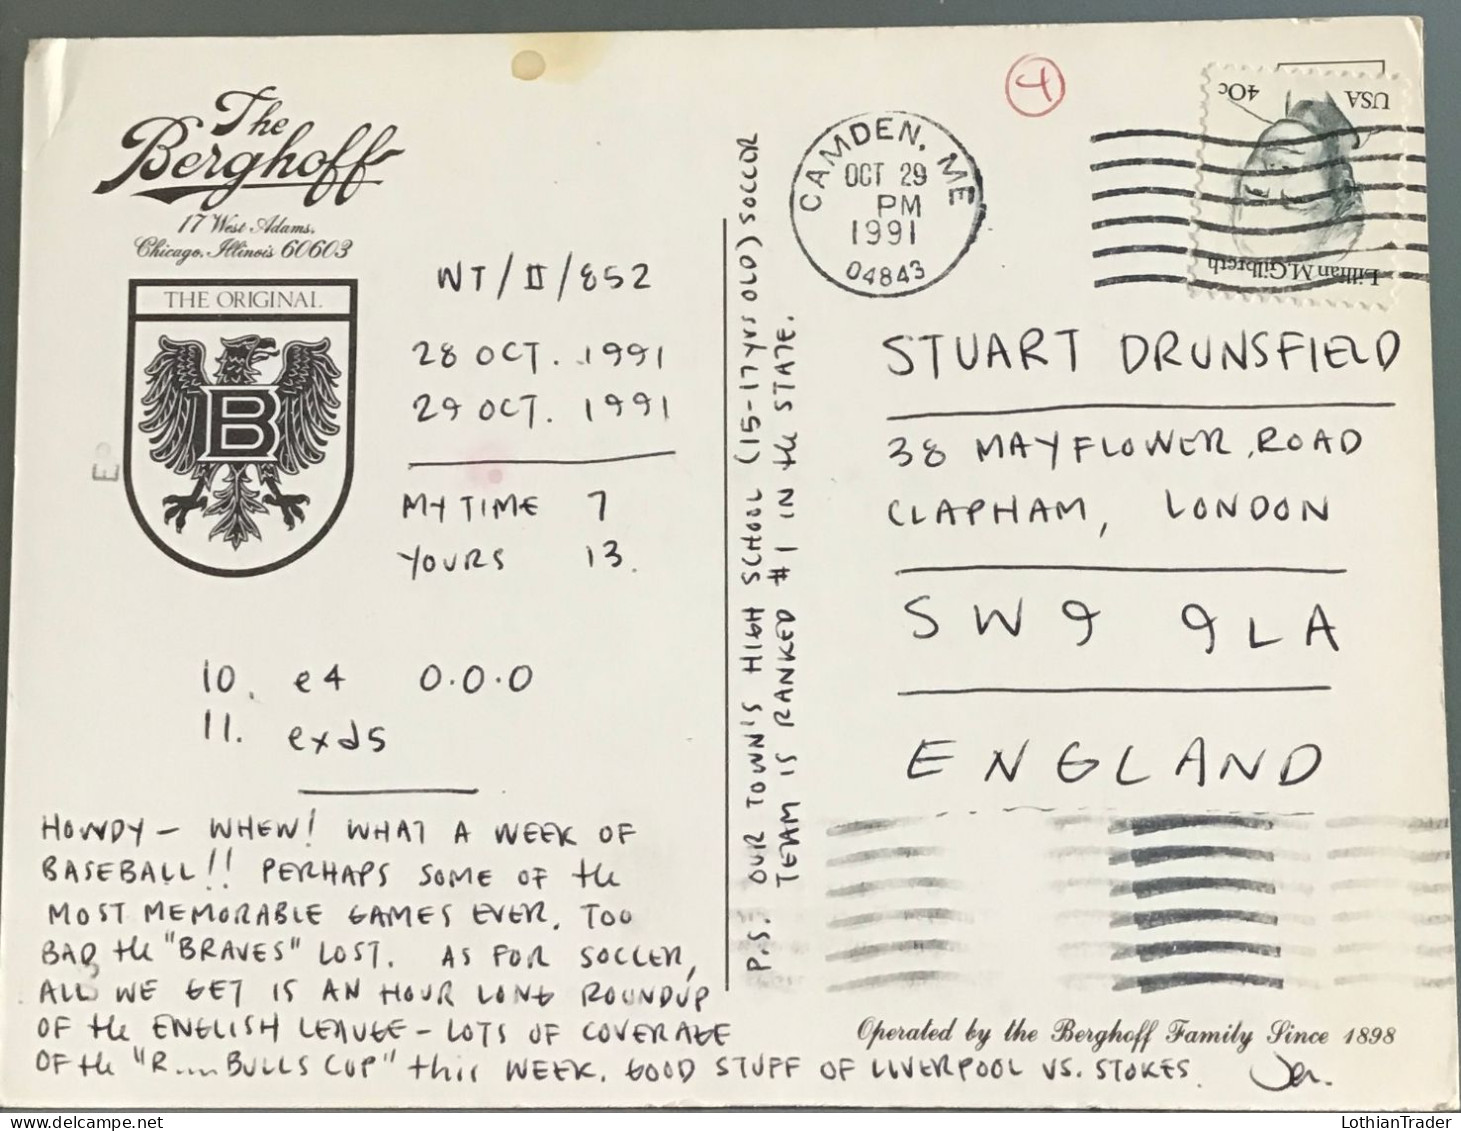 The
Berghoff
17 West Adams,
Chicago, Illinois 60603
THE ORIGINAL
B
E
WT/II/852
28 OCT. 1991
29 OCT. 1991
MY TIME 7
YOURS 13.
10. e4 0.0.0
11. exd5
HOWDY - WHEW! WHAT A WEEK OF
BASEBALL!! PERHAPS SOME OF the
MOST MEMORABLE GAMES EVER. TOO
BAD the "BRAVES" LOST. AS FOR SOCCER,
ALL WE GET IS AN HOUR LONG ROUNDUP
OF the ENGLISH LEAUGE - LOTS OF COVERAGE
OF the "R....BULLS CUP" this WEEK. GOOD STUFF OF LIVERPOOL VS. STOKES. Jer.
P.S. OUR TOWN'S HIGH SCHOOL (15-17 yrs OLD) SOCCOR
TEAM IS RANKED #1 IN the STATE.
4
CAMDEN, ME
OCT 29
PM
1991
04843
USA
40c
Lillian M. Gilbreth
STUART DRUNSFIELD
38 MAYFLOWER ROAD
CLAPHAM, LONDON
SW9 9LA
ENGLAND
Operated by the Berghoff Family Since 1898
LothianTrader